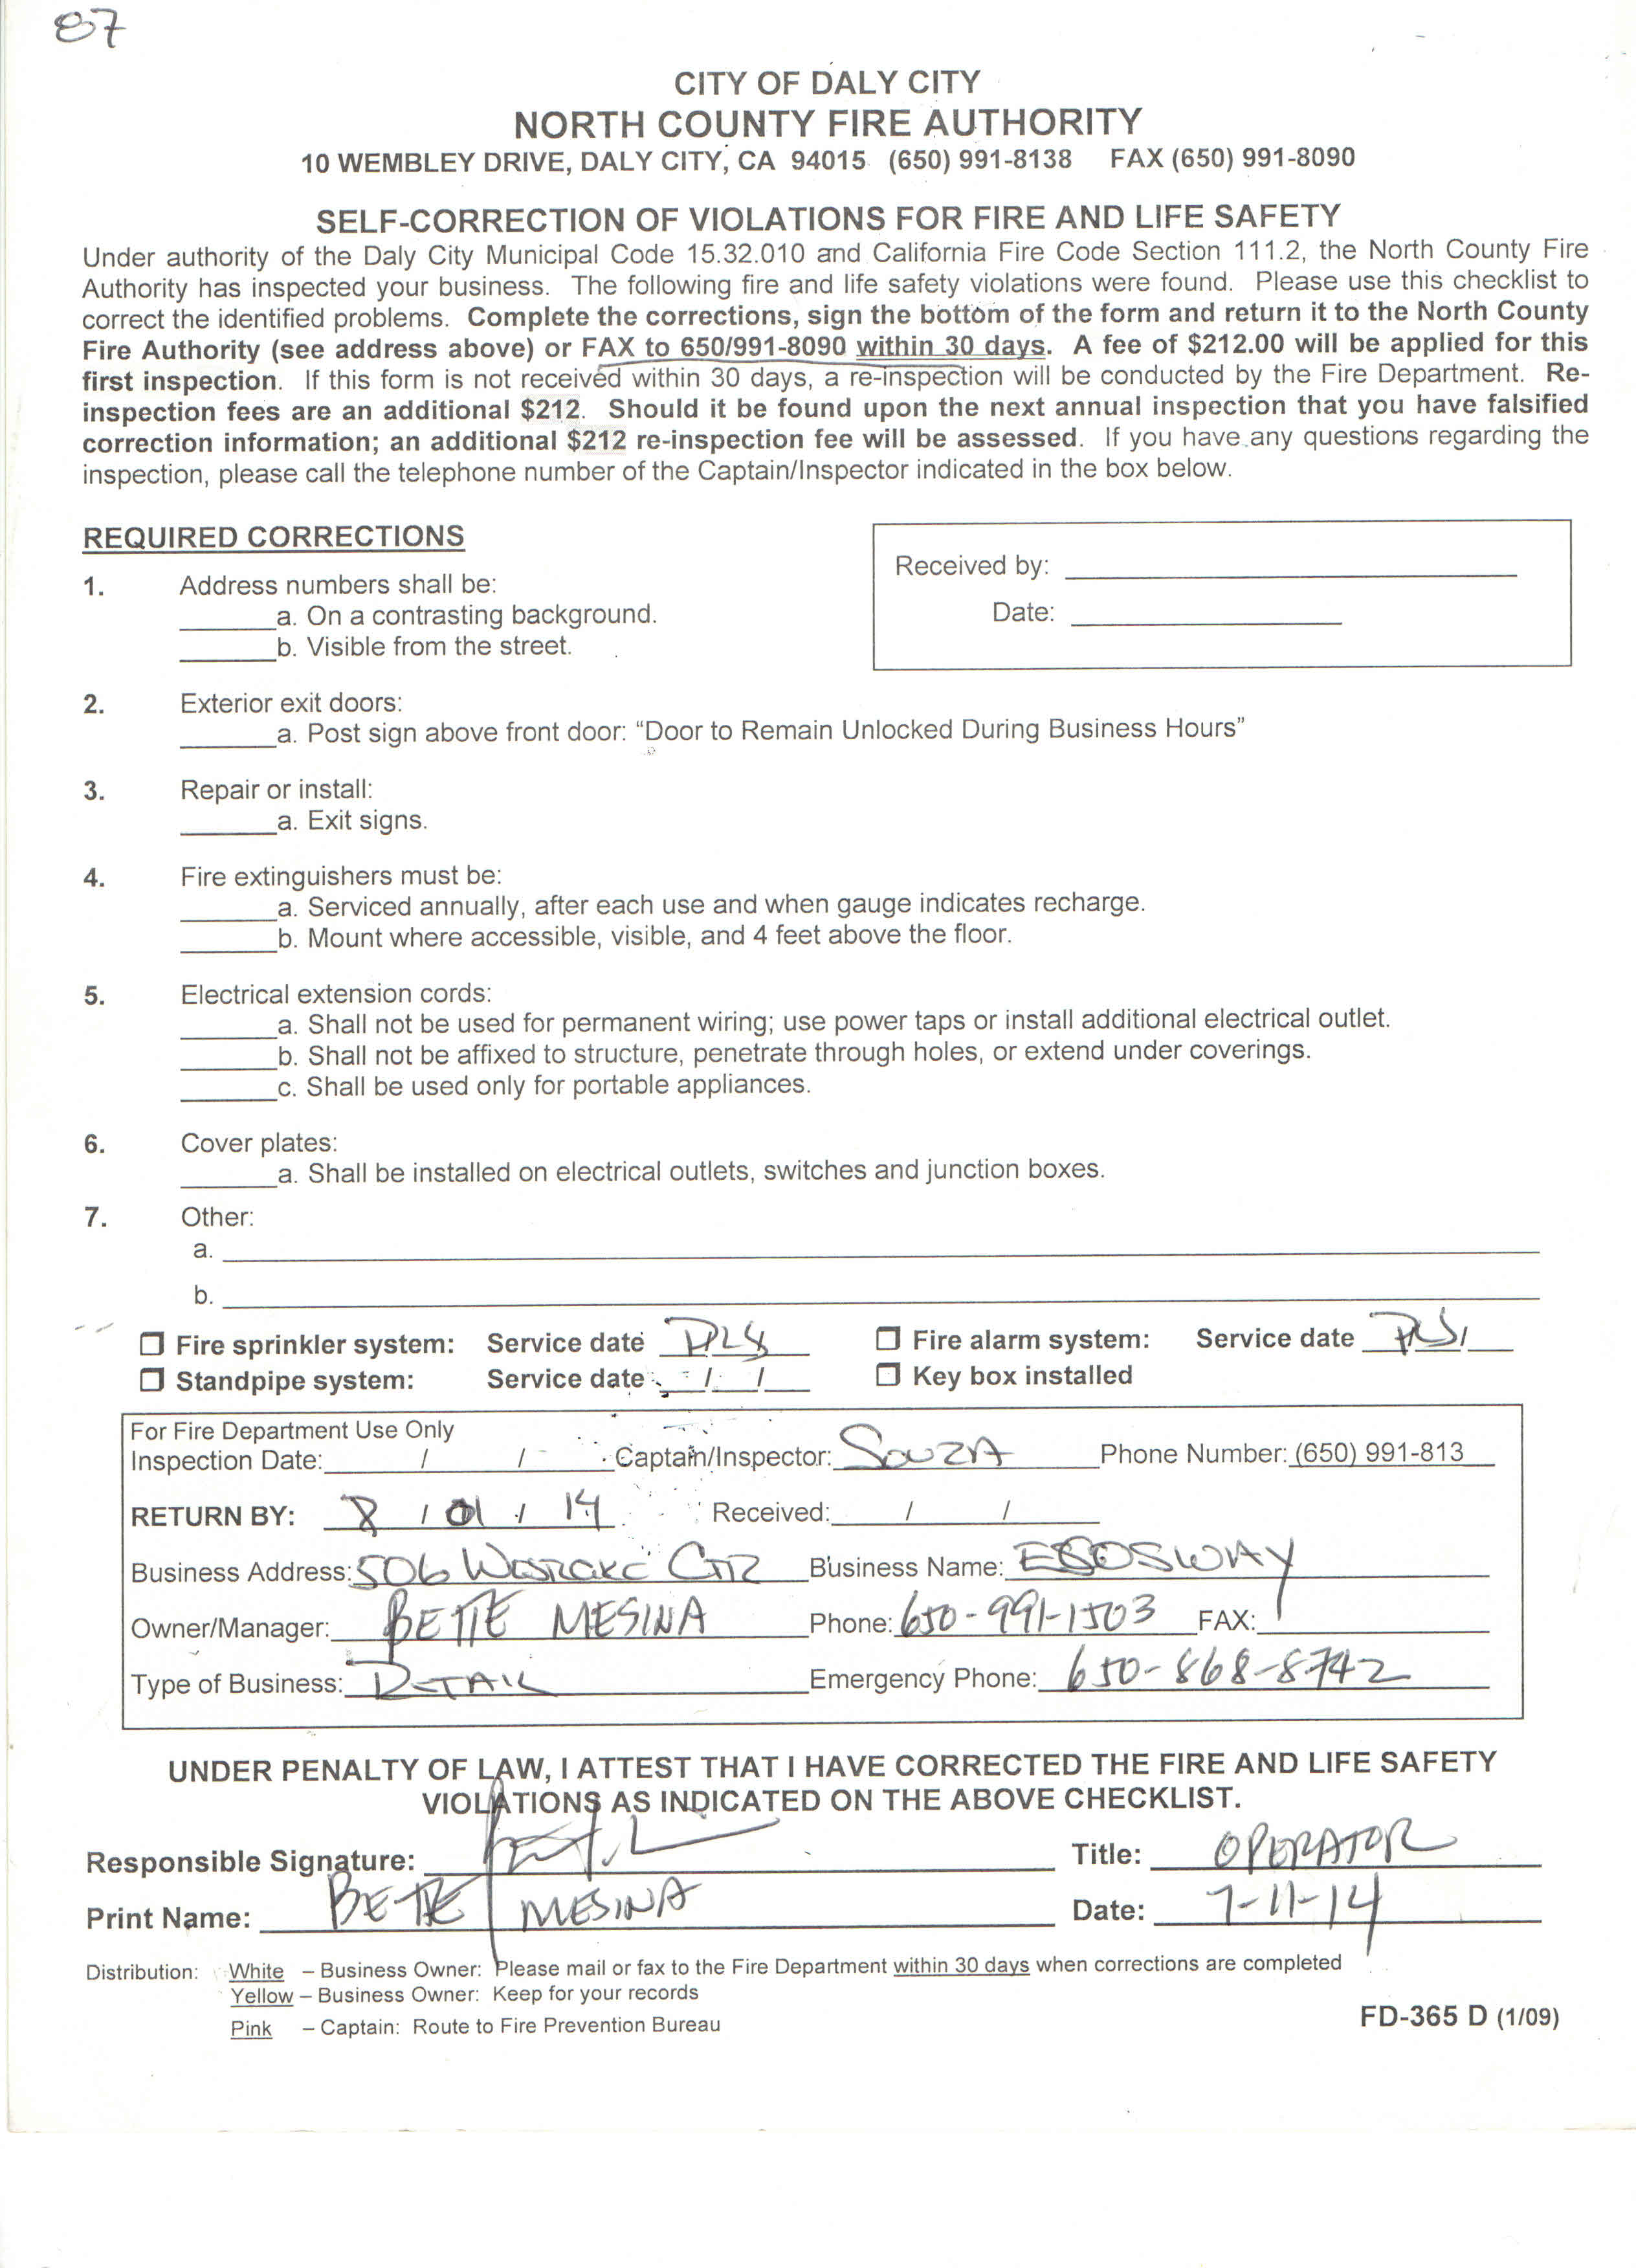 87
CITY OF DALY CITY
NORTH COUNTY FIRE AUTHORITY
10 WEMBLEY DRIVE, DALY CITY, CA 94015 (650) 991-8138 FAX (650) 991-8090
SELF-CORRECTION OF VIOLATIONS FOR FIRE AND LIFE SAFETY
Under authority of the Daly City Municipal Code 15.32.010 and California Fire Code Section 111.2, the North County Fire
Authority has inspected your business. The following fire and life safety violations were found. Please use this checklist to
correct the identified problems. Complete the corrections, sign the bottom of the form and return it to the North County
Fire Authority (see address above) or FAX to 650/991-8090 within 30 days. A fee of $212.00 will be applied for this
first inspection. If this form is not received within 30 days, a re-inspection will be conducted by the Fire Department. Re-
inspection fees are an additional $212. Should it be found upon the next annual inspection that you have falsified
correction information; an additional $212 re-inspection fee will be assessed. If you have any questions regarding the
inspection, please call the telephone number of the Captain/Inspector indicated in the box below.
REQUIRED CORRECTIONS
Received by:
Date:
1. Address numbers shall be:
a. On a contrasting background.
b. Visible from the street.
2. Exterior exit doors:
a. Post sign above front door: “Door to Remain Unlocked During Business Hours”
3. Repair or install:
a. Exit signs.
4. Fire extinguishers must be:
a. Serviced annually, after each use and when gauge indicates recharge.
b. Mount where accessible, visible, and 4 feet above the floor.
5. Electrical extension cords:
a. Shall not be used for permanent wiring; use power taps or install additional electrical outlet.
b. Shall not be affixed to structure, penetrate through holes, or extend under coverings.
c. Shall be used only for portable appliances.
6. Cover plates:
a. Shall be installed on electrical outlets, switches and junction boxes.
7. Other:
a.
b.
Fire sprinkler system: Service date Fire alarm system: Service date
Standpipe system: Service date / / Key box installed
For Fire Department Use Only
Inspection Date: / / Captain/Inspector: SOUZA Phone Number: (650) 991-813
RETURN BY: 8 / 01 / 14 Received: / /
Business Address: 506 WESTLAKE CTR Business Name:
Owner/Manager: BETTE MESINA Phone: 650-991-1503 FAX:
Type of Business: RETAIL Emergency Phone: 650-868-8742
UNDER PENALTY OF LAW, I ATTEST THAT I HAVE CORRECTED THE FIRE AND LIFE SAFETY
VIOLATIONS AS INDICATED ON THE ABOVE CHECKLIST.
Responsible Signature: Title: OPERATOR
Print Name: BETTE MESINA Date: 7-11-14
Distribution: White – Business Owner: Please mail or fax to the Fire Department within 30 days when corrections are completed
Yellow – Business Owner: Keep for your records
Pink – Captain: Route to Fire Prevention Bureau
FD-365 D (1/09)